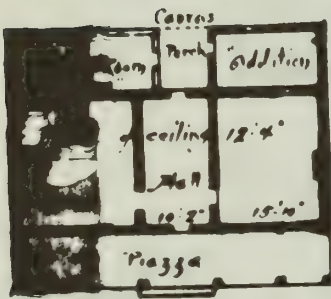 Canvas
Room Porch Addition
ceiling 12'4"
Hall
15'10"
Piazza